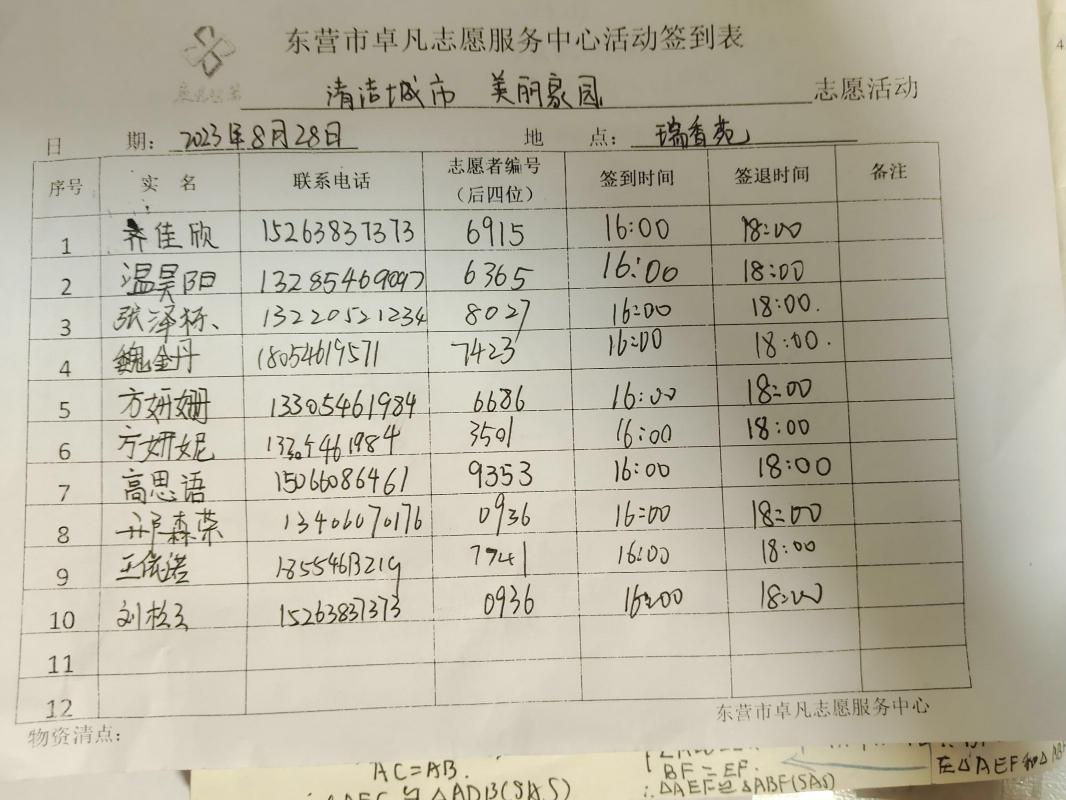 东营市卓凡志愿服务中心活动签到表
清洁城市 美丽家园 志愿活动
日 期: 2023年8月28日 地 点: 瑞香苑
序号 实 名 联系电话 志愿者编号（后四位） 签到时间 签退时间 备注
1 齐佳欣 15263837373 6915 16:00 18:00
2 温昊阳 13285469097 6365 16:00 18:00
3 张泽栎、 13220521234 8027 16:00 18:00.
4 魏金丹 18054619571 7423 16:00 18:00.
5 方妍姗 13305461984 6686 16:00 18:00
6 方妍妮 13305461984 3501 16:00 18:00
7 高思语 15066086461 9353 16:00 18:00
8 邢森荣 13406070176 0936 16:00 18:00
9 王依诺 18554613219 7741 16:00 18:00
10 刘松 15263837373 0936 16:00 18:00
11
12
东营市卓凡志愿服务中心
物资清点：
AC=AB.
BF=EF.
在△AEF和△AB
≌△ADB(SAS)
∴△AEF≌△ABF(SAS)